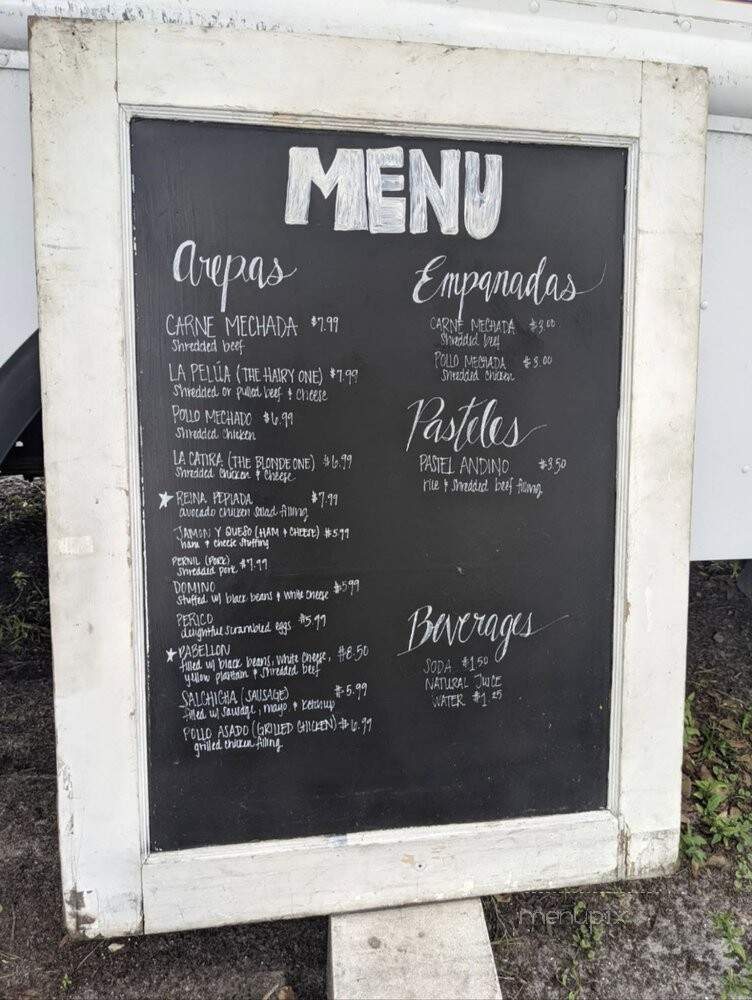 MENU
Arepas
CARNE MECHADA $7.99
Shredded beef
LA PELÚA (THE HAIRY ONE) $7.99
Shredded or pulled beef & cheese
POLLO MECHADO $6.99
Shredded chicken
LA CATIRA (THE BLONDE ONE) $6.99
Shredded chicken & cheese
REINA PEPIADA $7.99
avocado chicken salad filling
JAMON Y QUESO (HAM & CHEESE) $5.99
ham & cheese stuffing
PERNIL (PORK)
Shredded pork $7.99
DOMINO
Stuffed w/ black beans & white cheese $5.99
PERICO
delightful scrambled eggs $5.99
PABELLON
filled w/ black beans, white cheese, $8.50
yellow plantain & shredded beef
SALCHICHA (SAUSAGE) $5.99
filled w/ sausage, mayo & ketchup
POLLO ASADO (GRILLED CHICKEN) $6.99
grilled chicken filling
Empanadas
CARNE MECHADA $3.00
Shredded beef
POLLO MECHADA $3.00
Shredded chicken
Pasteles
PASTEL ANDINO $3.50
rice & shredded beef filling
Beverages
SODA $1.50
NATURAL JUICE
WATER $1.25
menupix